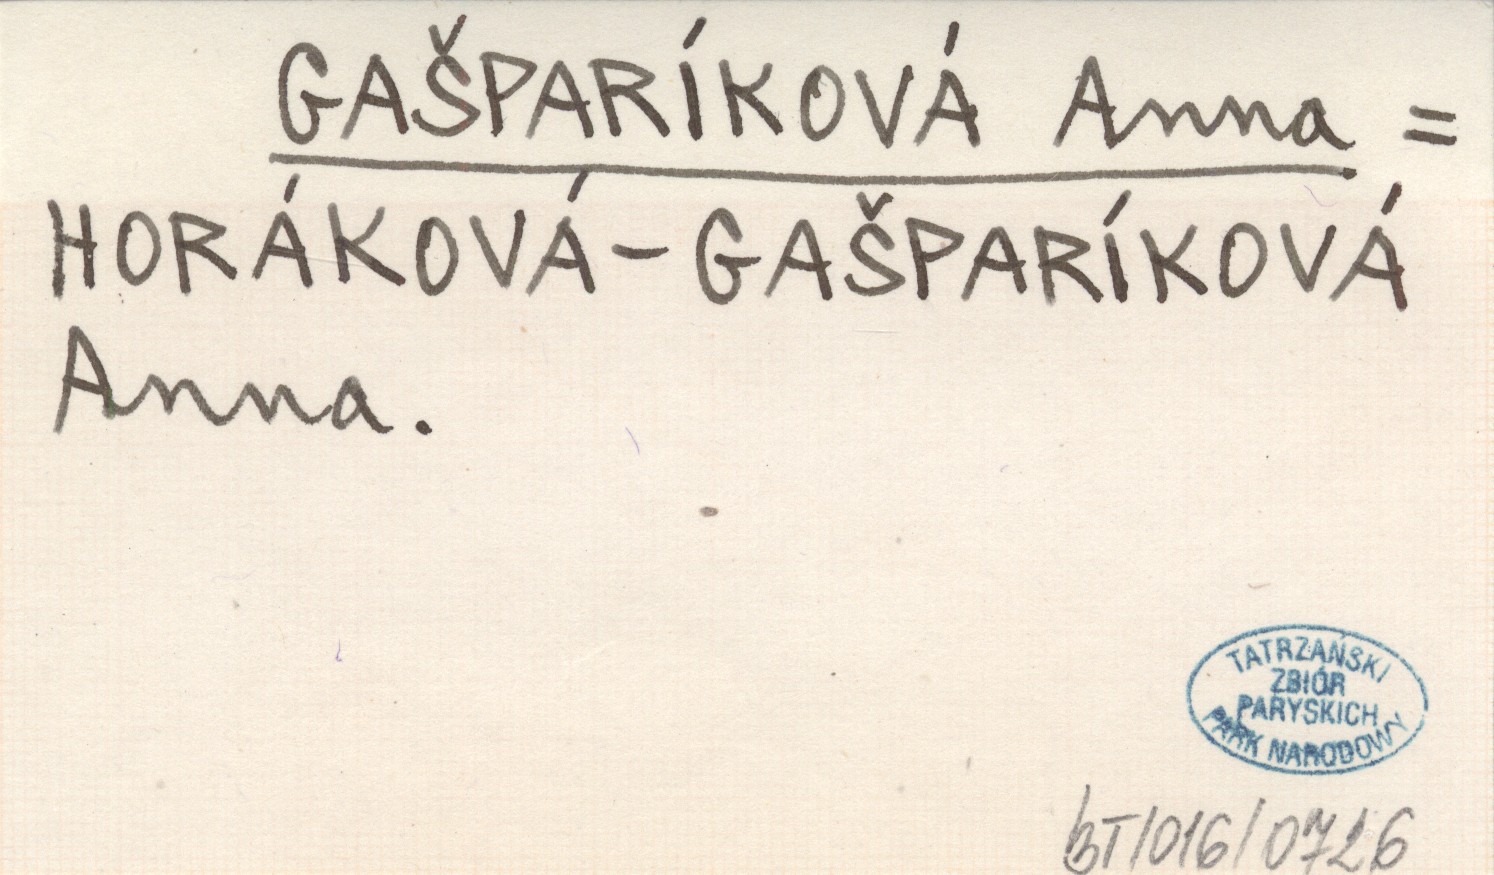 GAŠPARÍKOVÁ Anna =
HORÁKOVÁ-GAŠPARÍKOVÁ
Anna.
TATRZAŃSKI
ZBIÓR
PARYSKICH
PARK NARODOWY
BT/016/0726